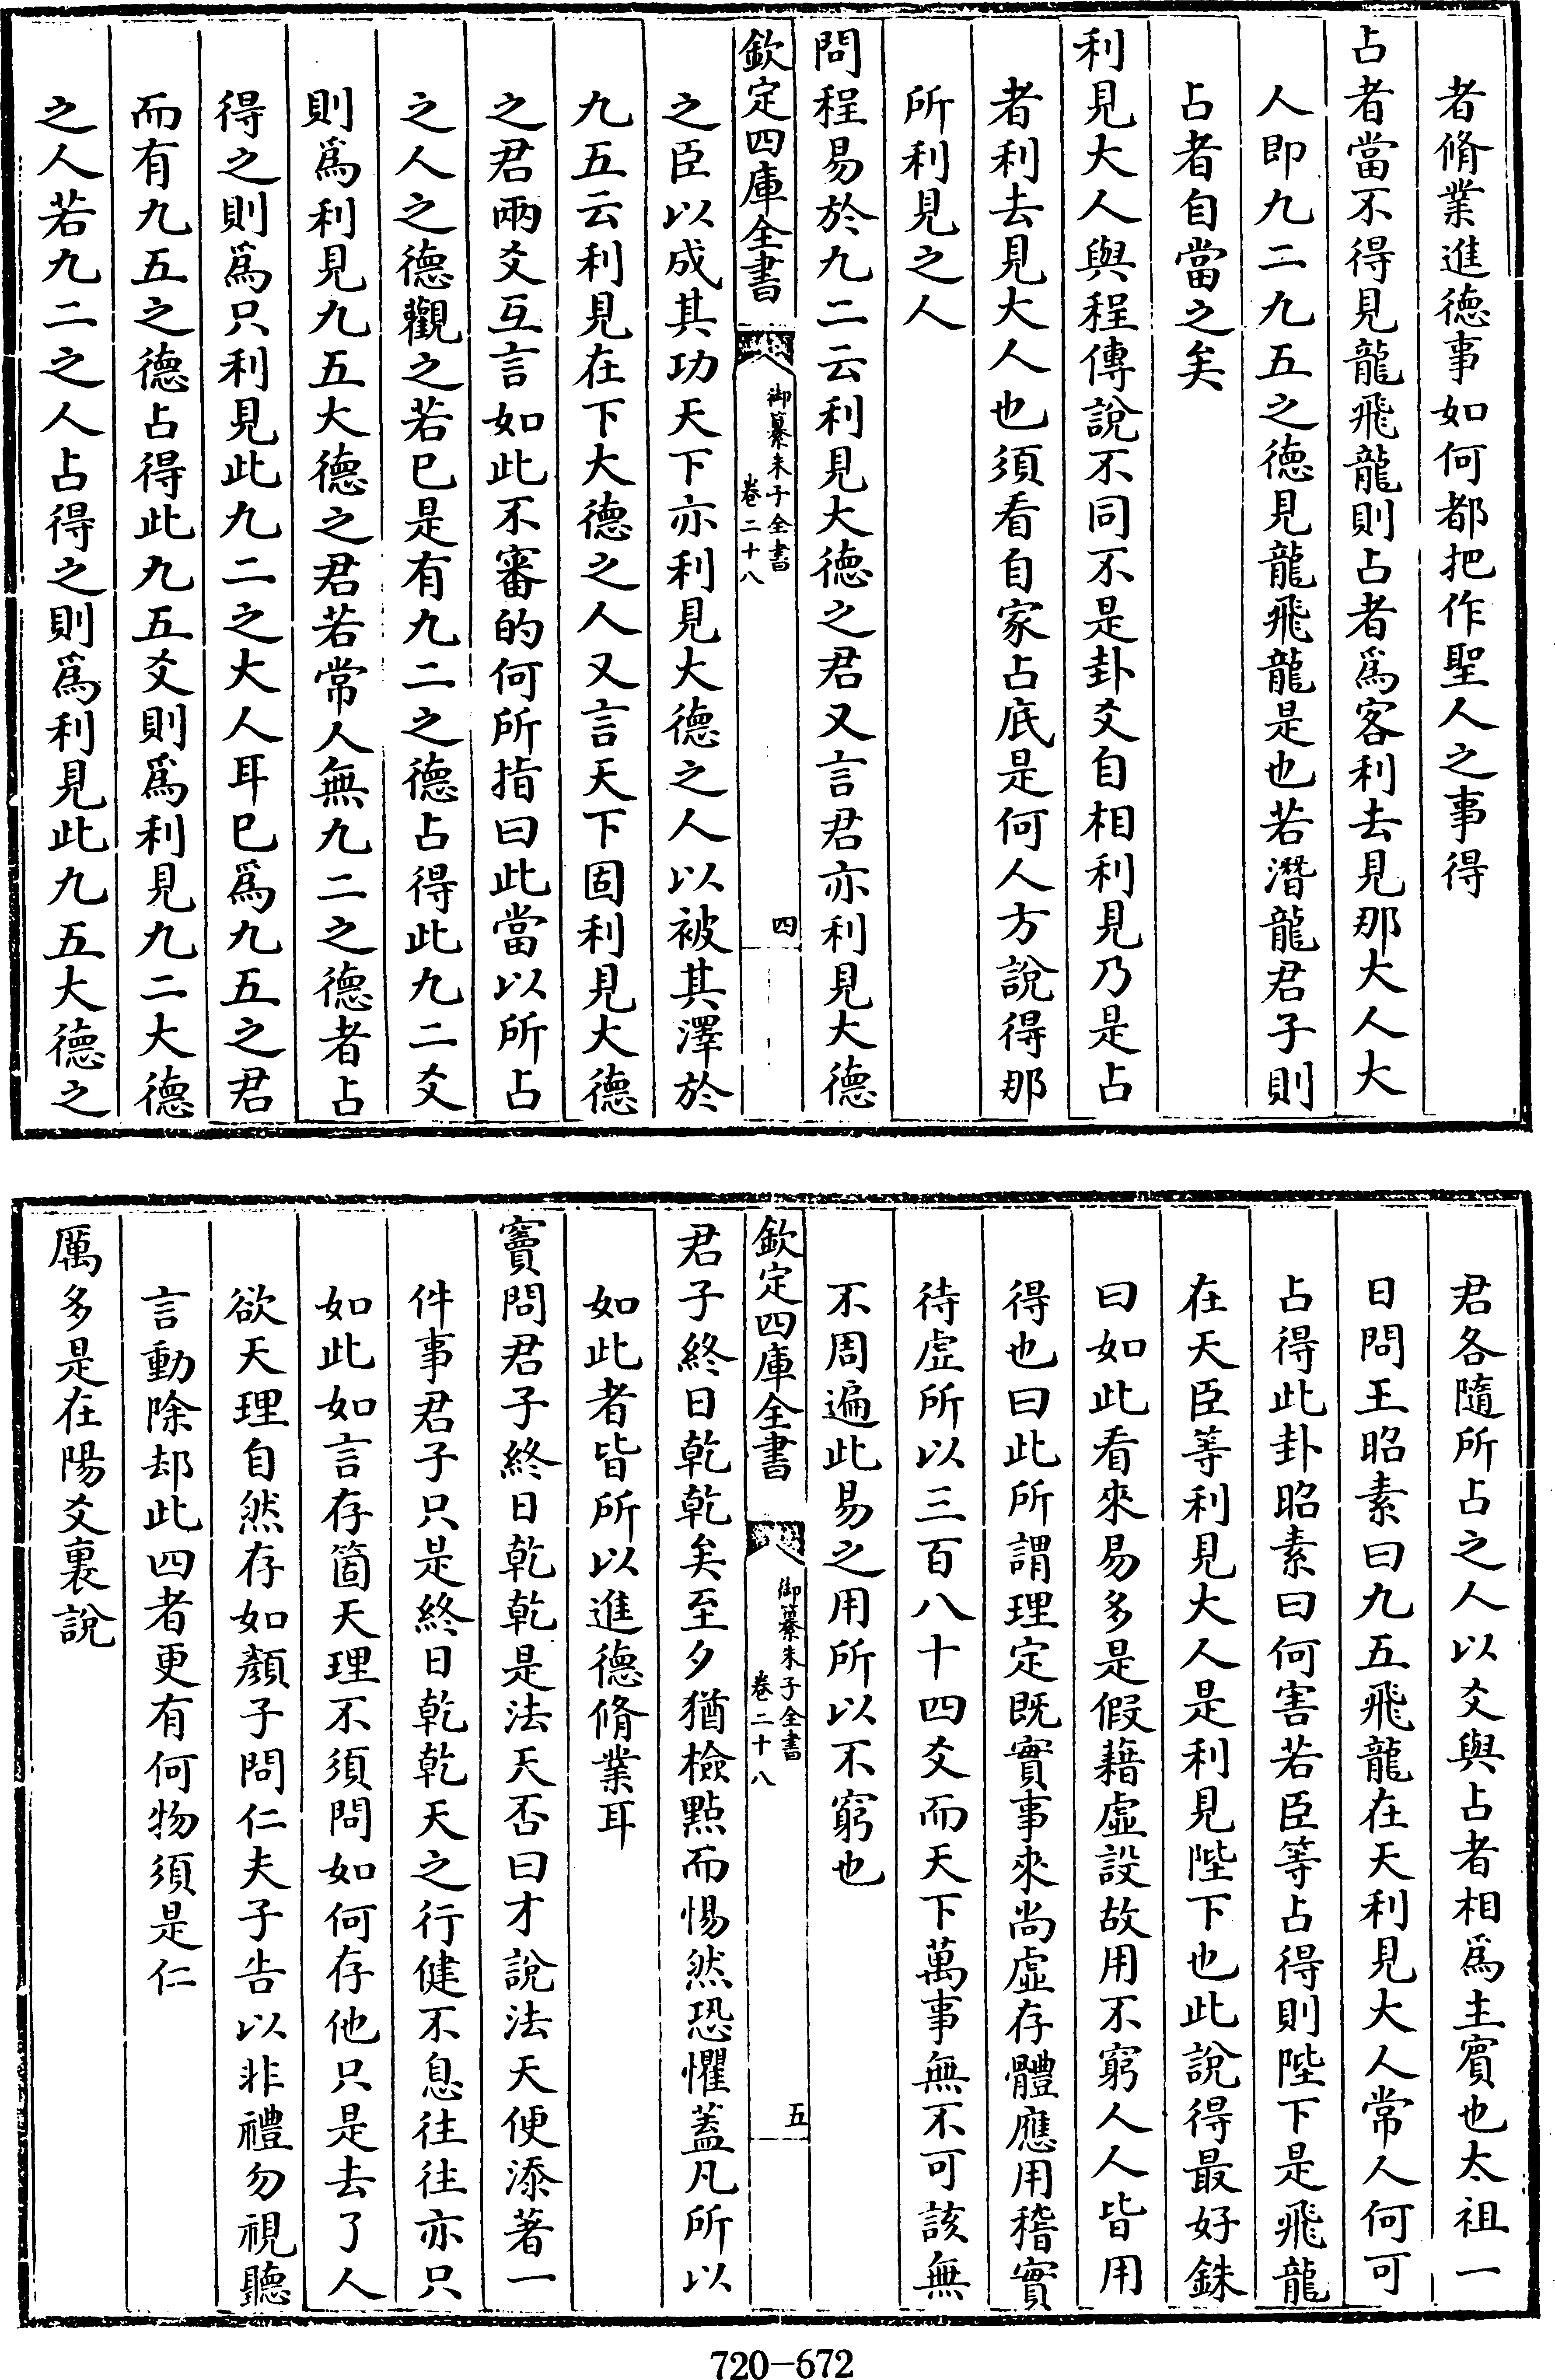 者脩業進德事如何都把作聖人之事得
占者當不得見龍飛龍則占者爲客利去見那大人大
人即九二九五之德見龍飛龍是也若潛龍君子則
占者自當之矣
利見大人與程傳說不同不是卦爻自相利見乃是占
者利去見大人也須看自家占底是何人方說得那
所利見之人
問程易於九二云利見大德之君又言君亦利見大德
欽定四庫全書
御纂朱子全書
卷二十八
四
之臣以成其功天下亦利見大德之人以被其澤於
九五云利見在下大德之人又言天下固利見大德
之君兩爻互言如此不審的何所指曰此當以所占
之人之德觀之若已是有九二之德占得此九二爻
則爲利見九五大德之君若常人無九二之德者占
得之則爲只利見此九二之大人耳已爲九五之君
而有九五之德占得此九五爻則爲利見九二大德
之人若九二之人占得之則爲利見此九五大德之
君各隨所占之人以爻與占者相爲主賓也太祖一
日問王昭素曰九五飛龍在天利見大人常人何可
占得此卦昭素曰何害若臣等占得則陛下是飛龍
在天臣等利見大人是利見陛下也此說得最好銖
曰如此看來易多是假藉虛設故用不窮人人皆用
得也曰此所謂理定既實事來尚虛存體應用稽實
待虛所以三百八十四爻而天下萬事無不可該無
不周遍此易之用所以不窮也
欽定四庫全書
御纂朱子全書
卷二十八
五
君子終日乾乾矣至夕猶檢點而惕然恐懼蓋凡所以
如此者皆所以進德脩業耳
竇問君子終日乾乾是法天否曰才說法天便添著一
件事君子只是終日乾乾天之行健不息往往亦只
如此如言存箇天理不須問如何存他只是去了人
欲天理自然存如顏子問仁夫子告以非禮勿視聽
言動除却此四者更有何物須是仁
厲多是在陽爻裏說
720-672